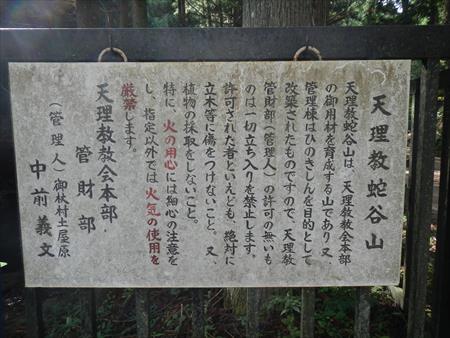 天理教蛇谷山
天理教蛇谷山は、天理教教会本部
の御用材を育成する山であり又
管理棟はひのきしんを目的として
改築されたものですので、天理教
管財部(管理人)の許可の無いも
のは一切立ち入りを禁止します。
許可された者といえども、絶対に
立木等に傷をつけないこと。又、
植物の採取をしないこと。
特に、火の用心には細心の注意を
し、指定以外では火気の使用を
厳禁します。
天理教教会本部
管財部
(管理人)御杖村土屋原
中前義文